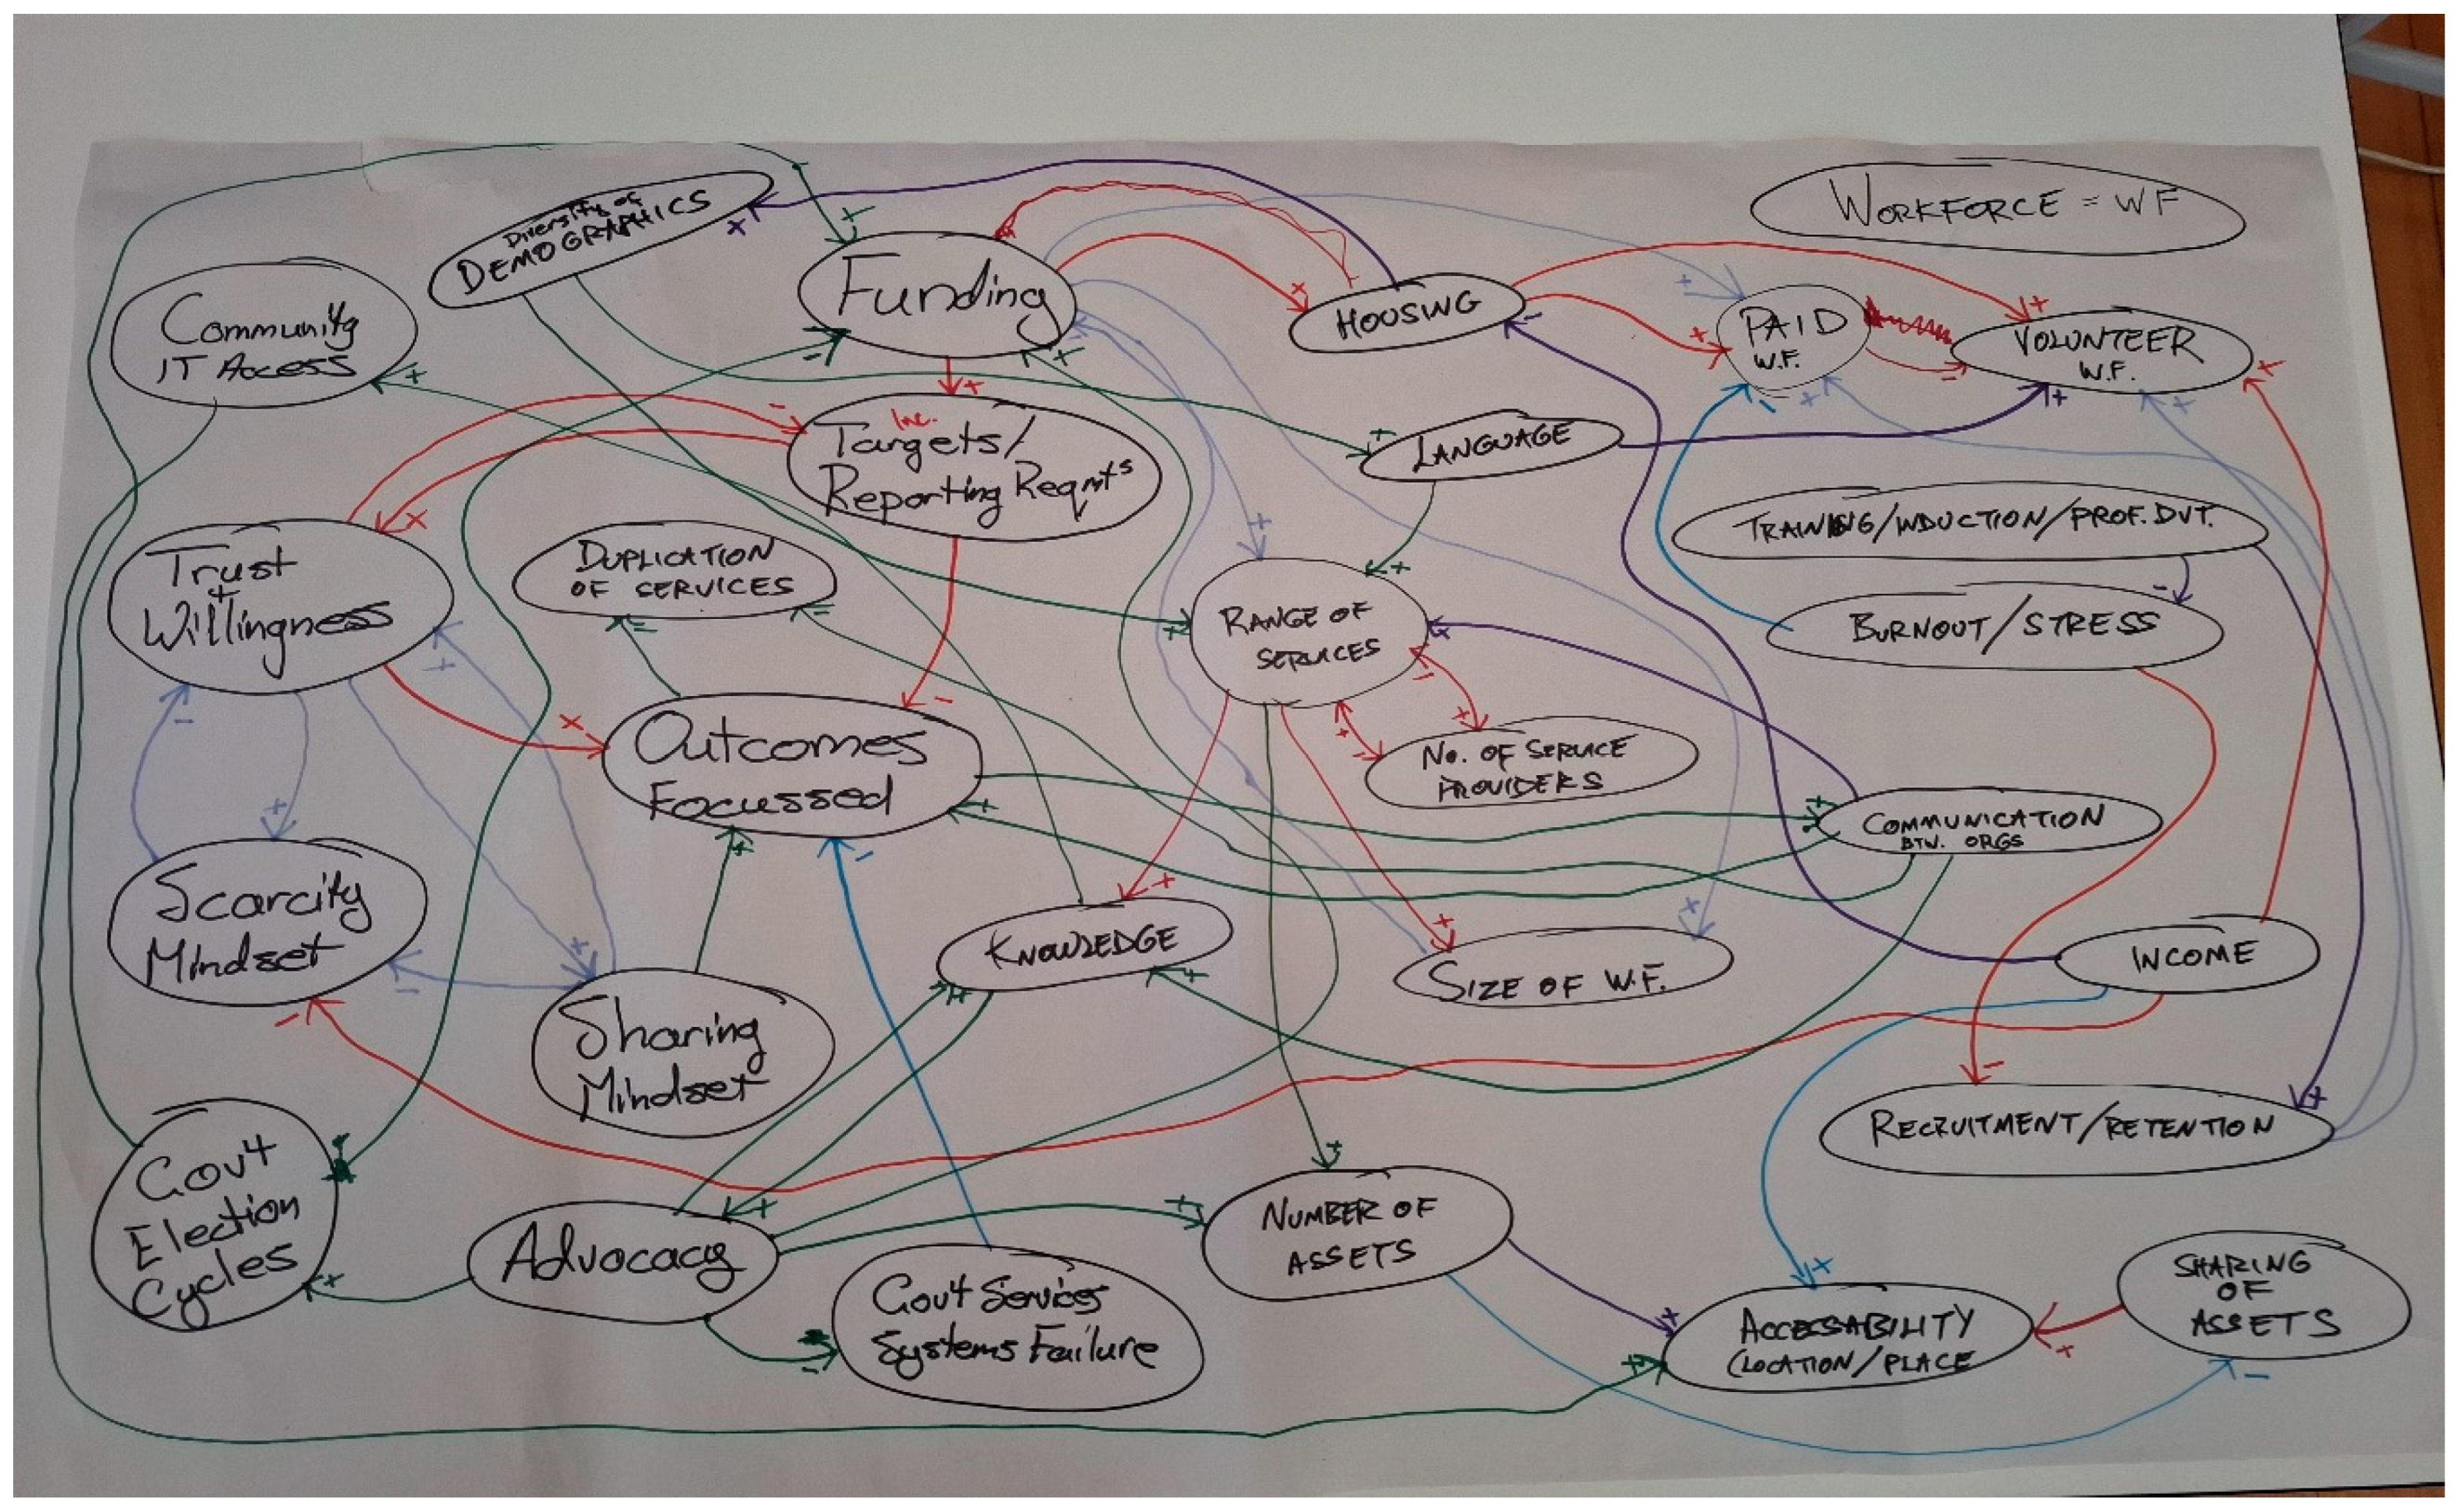 Diversity of
DEMOGRAPHICS
Funding
HOUSING
WORKFORCE = WF
PAID
W.F.
VOLUNTEER
W.F.
Community
IT Access
Inc.
Targets/
Reporting Reqmts
LANGUAGE
TRAINING/INDUCTION/PROF. DVT.
Trust
+
Willingness
DUPLICATION
OF SERVICES
RANGE OF
SERVICES
BURNOUT/STRESS
Outcomes
Focussed
No. OF SERVICE
PROVIDERS
COMMUNICATION
BTW. ORGS
Scarcity
Mindset
KNOWLEDGE
SIZE OF W.F.
INCOME
Sharing
Mindset
RECRUITMENT/RETENTION
Gov't
Election
Cycles
Advocacy
Gov't Services
Systems Failure
NUMBER OF
ASSETS
ACCESSABILITY
(LOCATION/PLACE
SHARING
OF
ASSETS